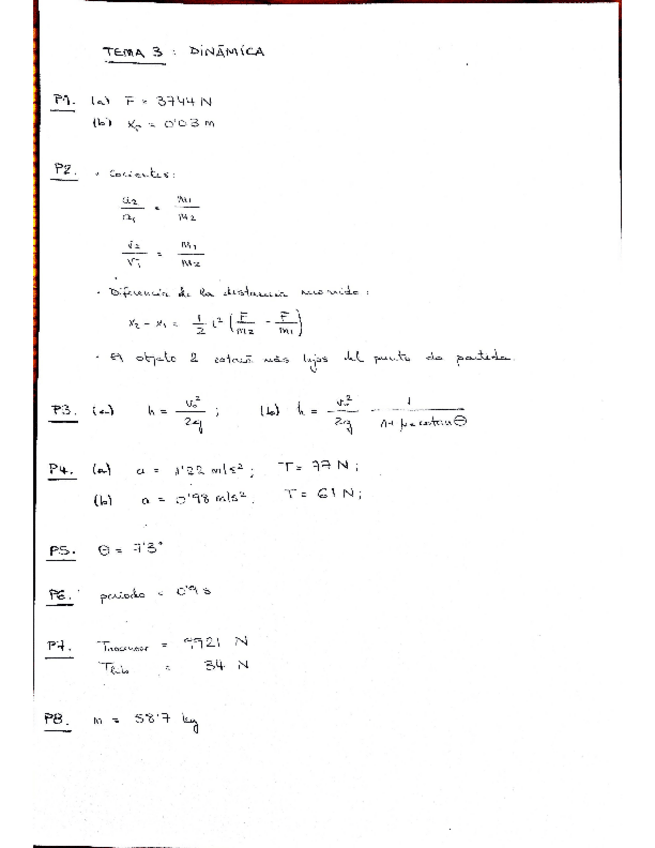 TEMA 3 : DINÁMICA
P1. (a) F = 3744 N
(b) x₀ = 0'03 m
P2. · Cocientes:
a₂/a₁ = m₁/m₂
v₂/v₁ = m₁/m₂
· Diferencia de la distancia recorrida:
x₂ - x₁ = 1/2 t² (F/m₂ - F/m₁)
· El objeto 2 estará más lejos del punto de partida.
P3. (a) h = v₀²/2g ; (b) h = v₀²/2g 1/(1+μc cotan θ)
P4. (a) a = 1'22 m/s² ; T = 77 N ;
(b) a = 0'98 m/s². T = 61 N ;
P5. θ = 7'3°
P6. periodo = 0'9 s
P7. = 921 N
= 34 N
P8. m = 58'7 kg